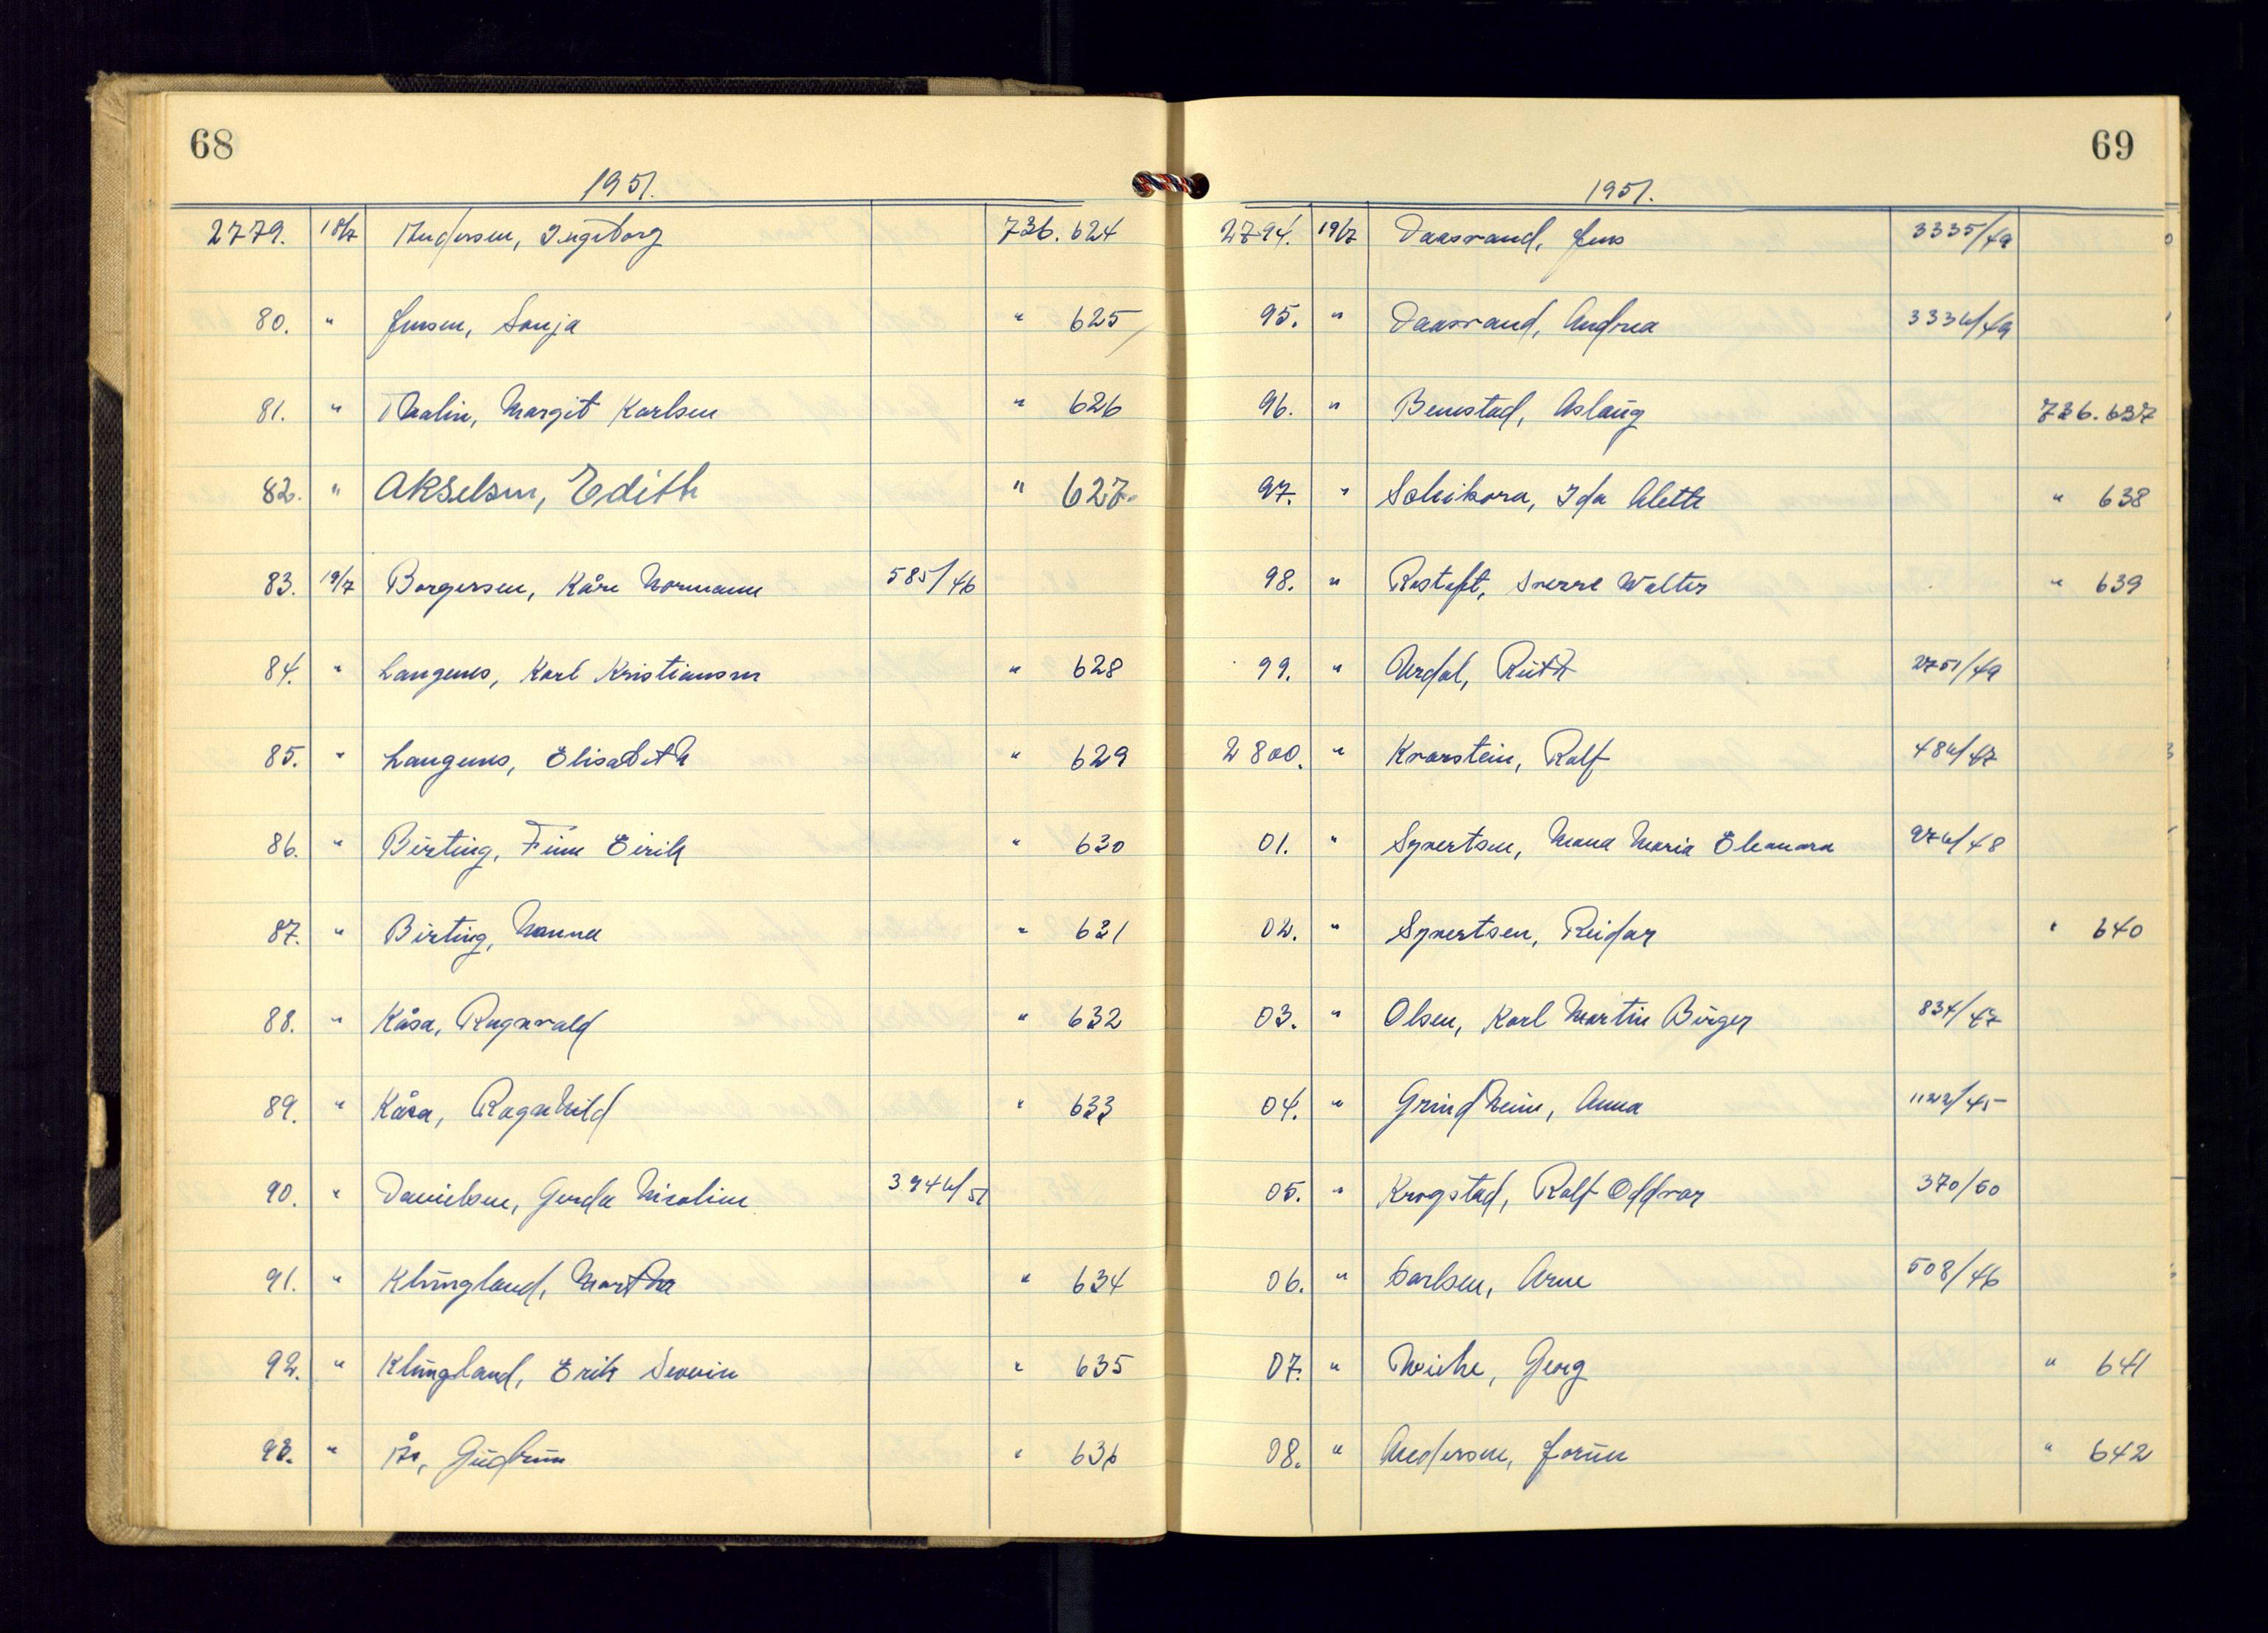 68
1951.
2779. 18/7 Andersen, Ingeborg 736.624
80. " Jensen, Sonja " 625
81. " Thalin, Margit Karlsen " 626
82. " Akselsen, Edith " 627.
83. 19/7 Borgersen, Kåre Normann 585/46
84. " Langenes, Karl Kristiansen " 628
85. " Langenes, Elisabeth " 629
86. " Birting, Finn Eirik " 630
87. " Birting, Nanna " 631
88. " Kåsa, Ragnvald " 632
89. " Kåsa, Ragnhild " 633
90. " Danielsen, Gerda Nicoline 3942/51
91. " Klungland, Martha " 634
92. " Klungland, Erik Severin " 635
93. " Ås, Gudrun " 636
69
1951.
2794. 19/7 Daasvand, Jens 3335/49
95. " Daasvand, Andrea 3332/49
96. " Benestad, Aslaug 736.637
97. " Schikora, Ida Alette " 638
98. " Rostoft, Sverre Walter " 639
99. " Urdal, Ruth 2751/49
2800. " Kvarstein, Rolf 482/47
01. " Syvertsen, Mona Maria Eleonora 972/48
02. " Syvertsen, Reidar " 640
03. " Olsen, Karl Martin Birger 834/47
04. " Grindheim, Anna 1122/45
05. " Krogstad, Rolf Oddvar 370/50
06. " Carlsen, Arne 508/46
07. " Wiche, Georg " 641
08. " Andersen, Jorun " 642